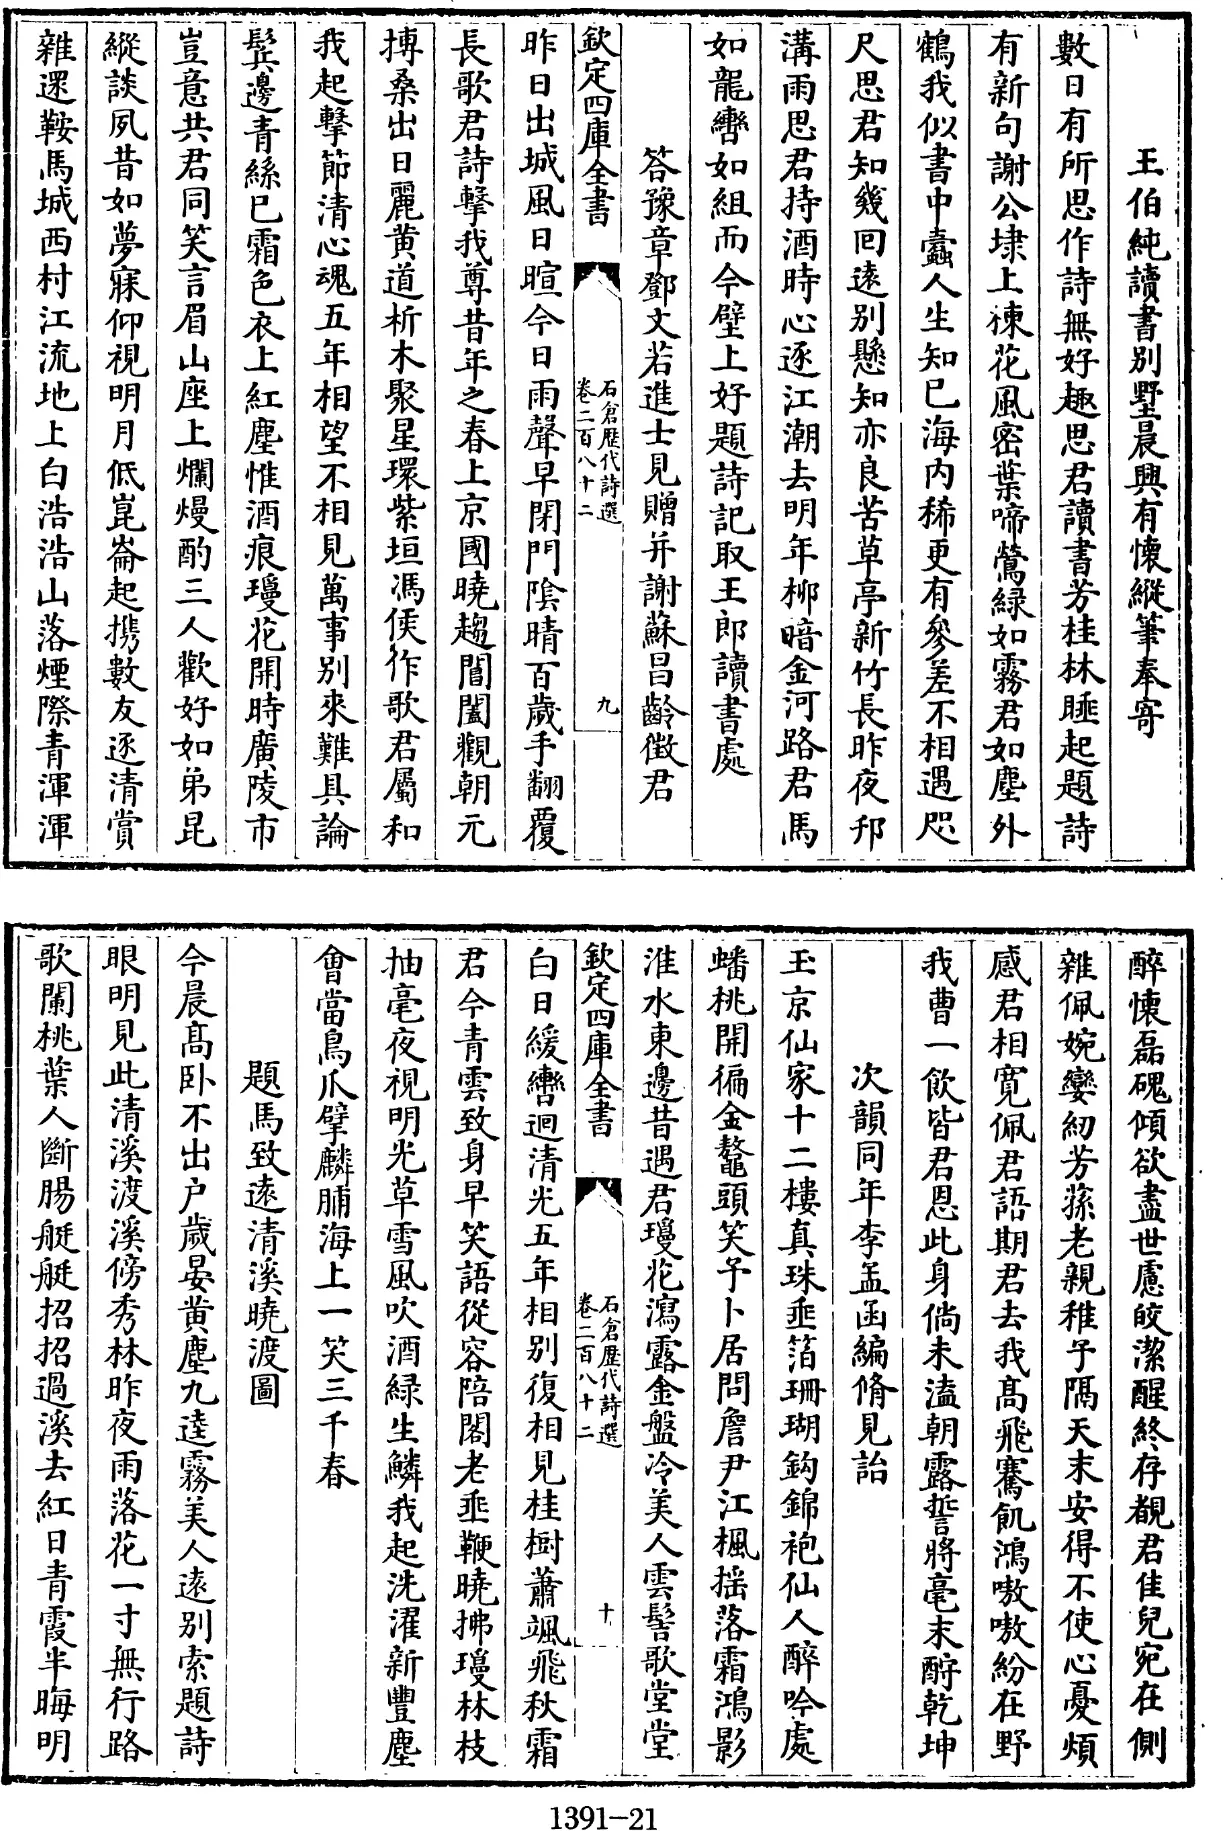 王伯純讀書別墅晨興有懷縱筆奉寄
數日有所思作詩無好趣思君讀書芳桂林睡起題詩
有新句謝公埭上楝花風密葉啼鶯緑如霧君如塵外
鶴我似書中蠹人生知已海内稀更有參差不相遇咫
尺思君知幾回逺别懸知亦良苦草亭新竹長昨夜邗
溝雨思君持酒時心逐江潮去明年柳暗金河路君馬
如龍轡如組而今壁上好題詩記取王郎讀書處
答豫章鄧文若進士見贈并謝蘇昌齡徴君
欽定四庫全書
石倉歴代詩選
卷二百八十二
九
昨日出城風日暄今日雨聲早閉門隂晴百歳手翻覆
長歌君詩擊我尊昔年之春上京國曉趨閶闔觀朝元
摶桑出日麗黄道析木聚星環紫垣馮侯作歌君屬和
我起擊節清心魂五年相望不相見萬事别來難具論
鬂邊青絲已霜色衣上紅塵惟酒痕瓊花開時廣陵市
豈意共君同笑言眉山座上爛熳酌三人歡好如弟昆
縱談夙昔如夢寐仰視明月低崑崙起攜數友逐清賞
雜遝鞍馬城西村江流地上白浩浩山落煙際青渾渾
醉懐磊磈傾欲盡世慮皎潔醒終存覩君佳兒宛在側
雜佩婉孌紉芳蓀老親稚子隔天末安得不使心憂煩
感君相寛佩君語期君去我髙飛騫飢鴻嗷嗷紛在野
我曹一飲皆君恩此身倘未溘朝露誓將毫末酧乾坤
次韻同年李孟函編脩見詒
玉京仙家十二樓真珠垂箔珊瑚鈎錦袍仙人醉吟處
蟠桃開徧金鼇頭笑予卜居問詹尹江楓揺落霜鴻影
淮水東邊昔遇君瓊花瀉露金盤冷美人雲髻歌堂堂
欽定四庫全書
石倉歴代詩選
卷二百八十二
十
白日緩轡迴清光五年相别復相見桂樹蕭颯飛秋霜
君今青雲致身早笑語從容陪閣老垂鞭曉拂瓊林枝
抽毫夜視明光草雪風吹酒緑生鱗我起洗濯新豐塵
會當鳥爪擘麟脯海上一笑三千春
題馬致逺清溪曉渡圖
今晨髙卧不出户歳晏黄塵九逵霧美人逺别索題詩
眼明見此清溪渡溪傍秀林昨夜雨落花一寸無行路
歌闌桃葉人斷腸艇艇招招過溪去紅日青霞半晦明
1391-21